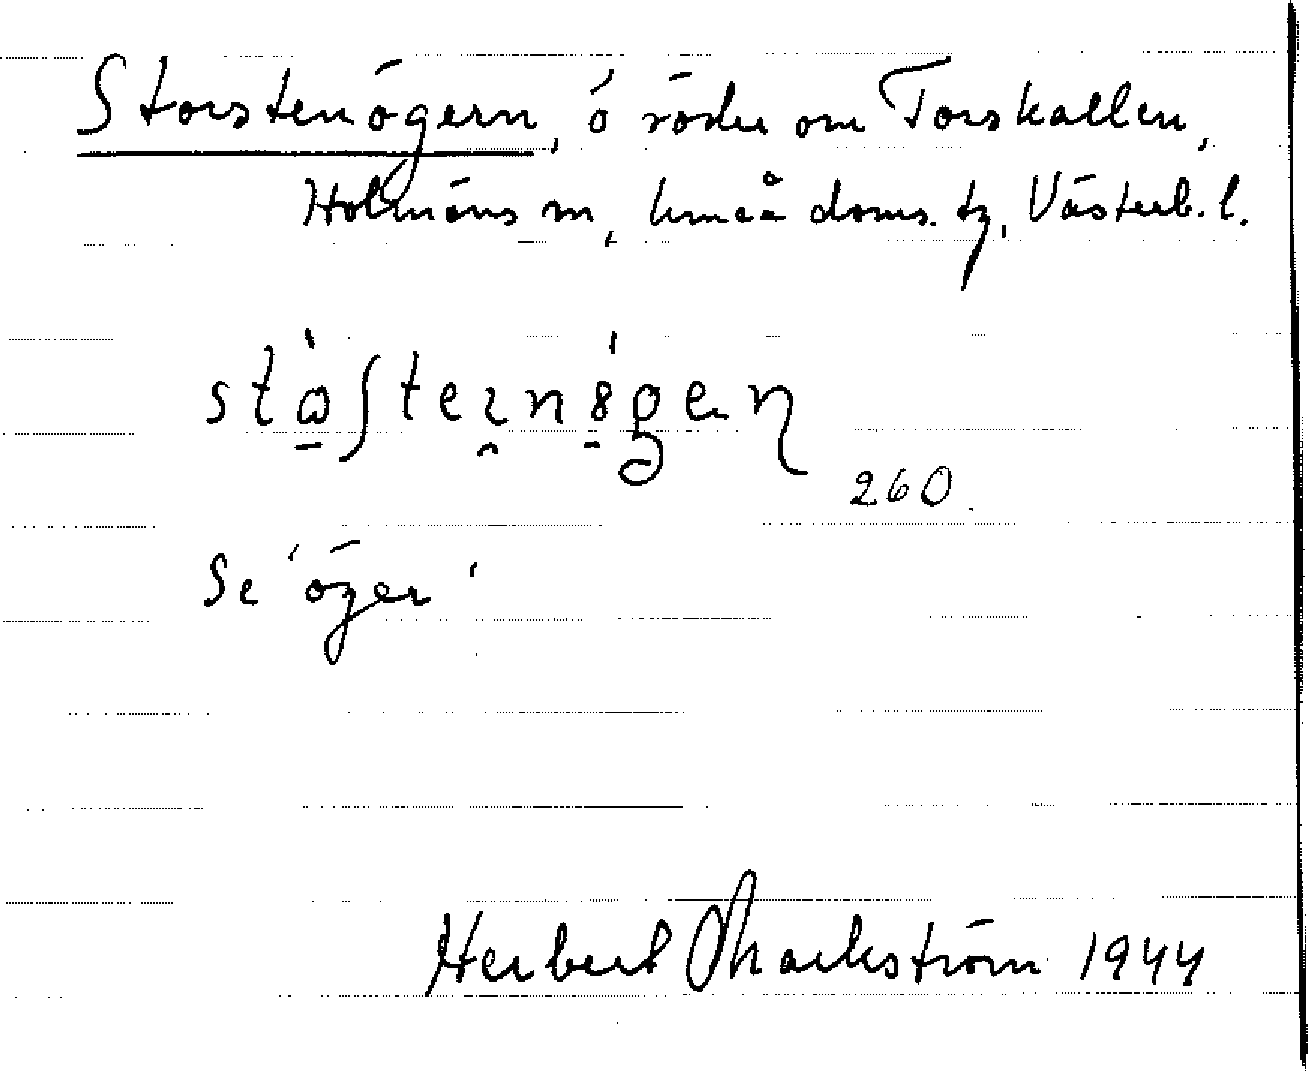 Storstenögern, ö söder om Torskallen,
Holmöns sn, Umeå doms. tg, Västerb. l.
260
Se 'öger'
Herbert Markström 1944